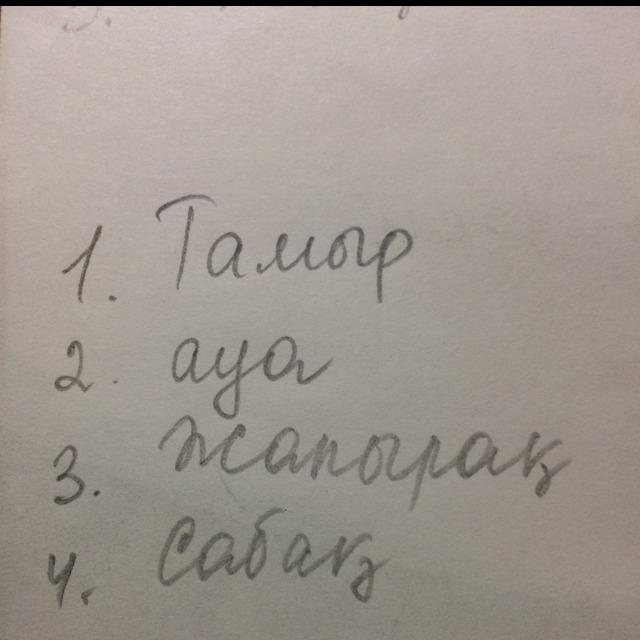 1. Тамыр
2. ауа
3. жапырақ
4. сабақ